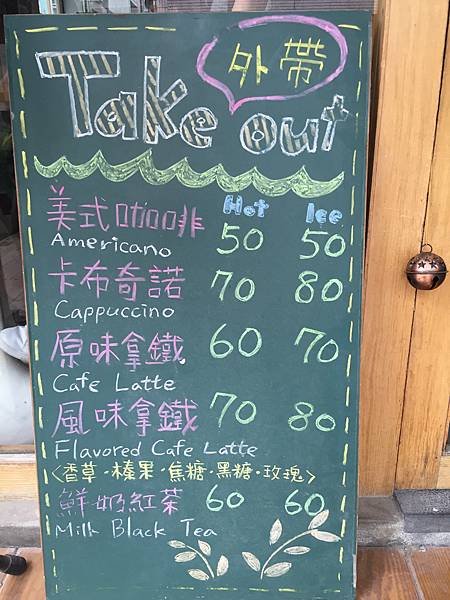 外帶
Take out
Hot Ice
美式咖啡 50 50
Americano
卡布奇諾 70 80
Cappuccino
原味拿鐵 60 70
Cafe Latte
風味拿鐵 70 80
Flavored Cafe Latte
<香草·榛果·焦糖·黑糖·玫瑰>
鮮奶紅茶 60 60
Milk Black Tea